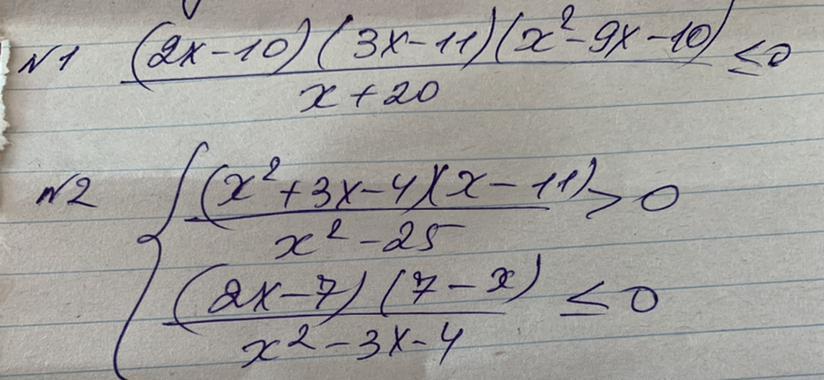 №1 (2x-10)(3x-11)(x²-9x-10) ≤0
x+20
№2 (x²+3x-4)(x-11) >0
x²-25
(2x-7)(7-x) ≤0
x²-3x-4